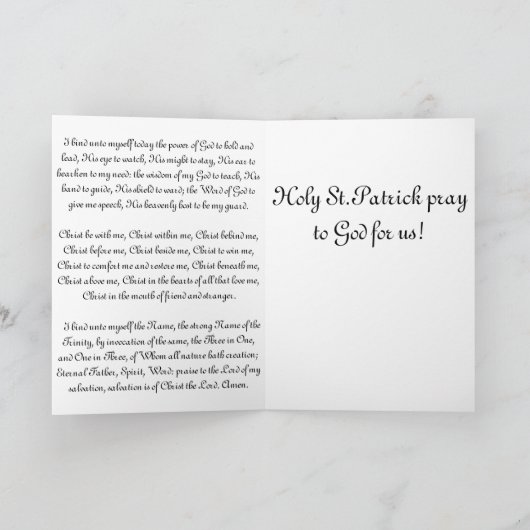 I bind unto myself today the power of God to hold and
lead, His eye to watch, His might to stay, His ear to
hearken to my need: the wisdom of my God to teach, His
hand to guide, His shield to ward; the Word of God to
give me speech, His heavenly host to be my guard.
Christ be with me, Christ within me, Christ behind me,
Christ before me, Christ beside me, Christ to win me,
Christ to comfort me and restore me, Christ beneath me,
Christ above me, Christ in the hearts of all that love me,
Christ in the mouth of friend and stranger.
I bind unto myself the Name, the strong Name of the
Trinity, by invocation of the same, the Three in One,
and One in Three, of Whom all nature hath creation;
Eternal Father, Spirit, Word: praise to the Lord of my
salvation, salvation is of Christ the Lord. Amen.
Holy St.Patrick pray
to God for us!